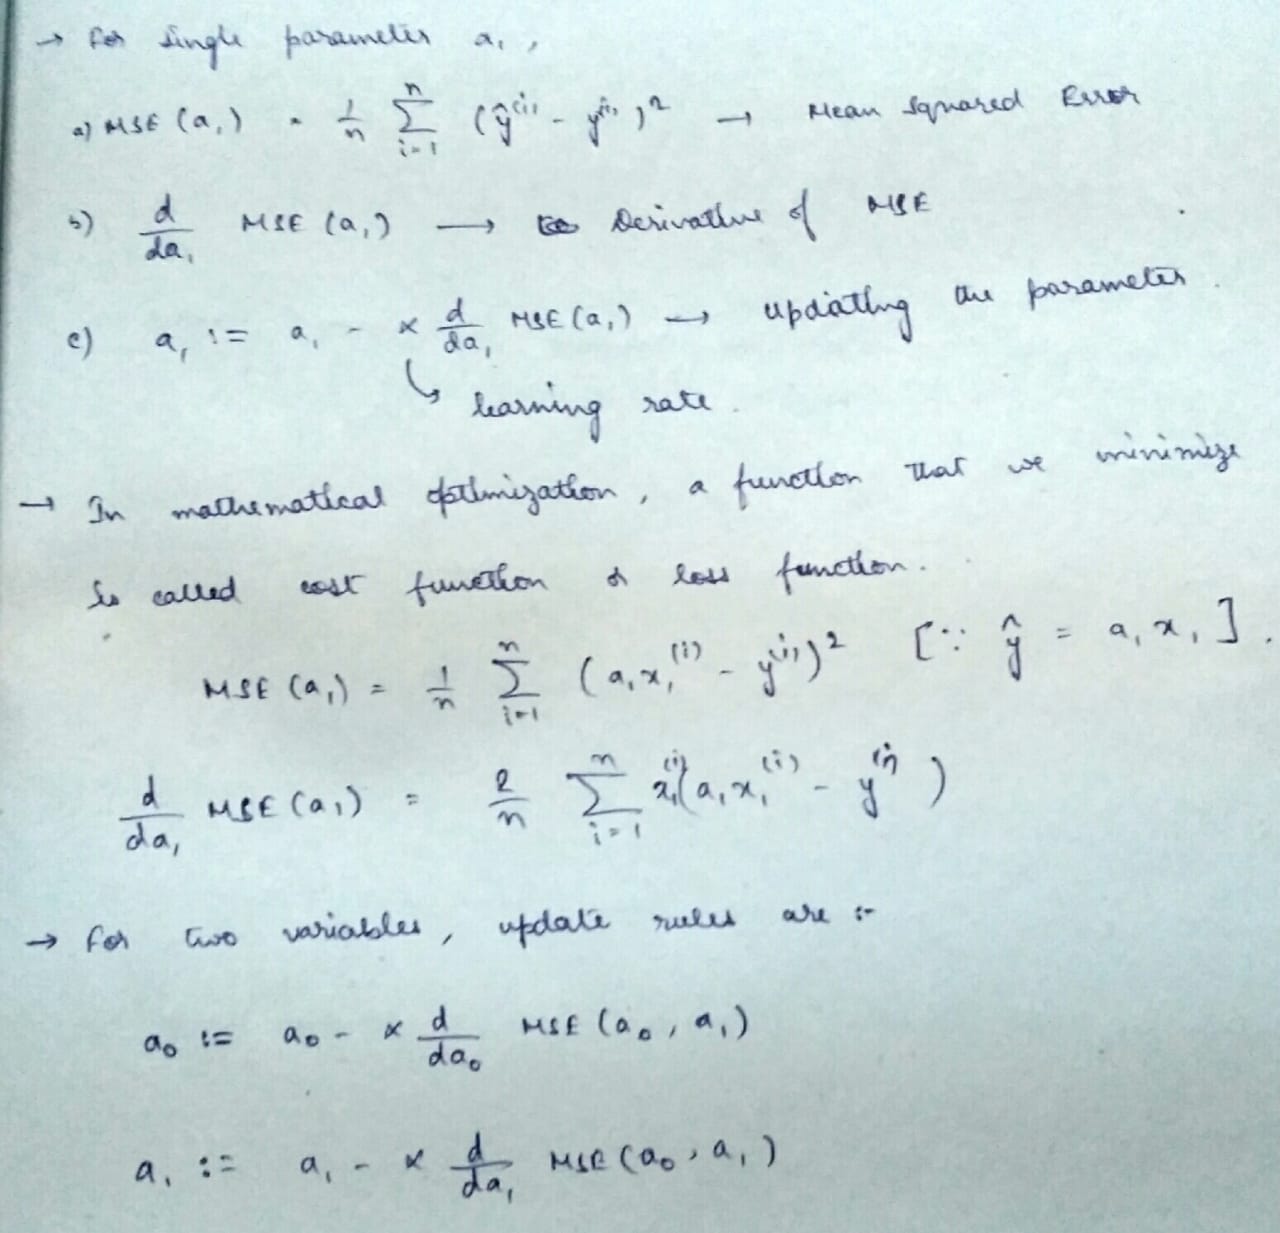 → For single parameter a₁,
a) MSE (a₁) = 1/n Σ_{i=1}^{n} (ŷ⁽ⁱ⁾ - y⁽ⁱ⁾)² → Mean Squared Error
b) d/da₁ MSE (a₁) → Derivative of MSE
c) a₁ := a₁ - α d/da₁ MSE (a₁) → updating the parameter.
↳ learning rate.
→ In mathematical optimization, a function that we minimize
is called cost function or loss function.
MSE (a₁) = 1/n Σ_{i=1}^{n} (a₁x₁⁽ⁱ⁾ - y⁽ⁱ⁾)² [∵ ŷ = a₁x₁].
d/da₁ MSE (a₁) = 2/n Σ_{i=1}^{n} x₁⁽ⁱ⁾(a₁x₁⁽ⁱ⁾ - y⁽ⁱ⁾)
→ For two variables, update rules are :-
a₀ := a₀ - α d/da₀ MSE (a₀, a₁)
a₁ := a₁ - α d/da₁ MSE (a₀, a₁)